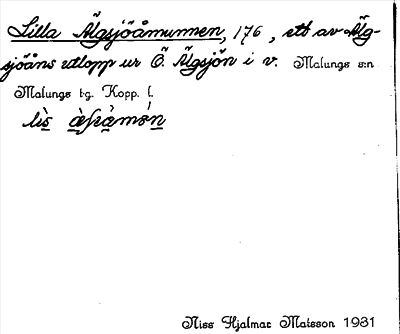 Lilla Älgsjöåmunnen, 176, ett av Älg-
sjöåns utlopp ur Ö. Älgsjön i v. Malungs s:n
Malungs t:g. Kopp. l.
Nils Hjalmar Matsson 1931